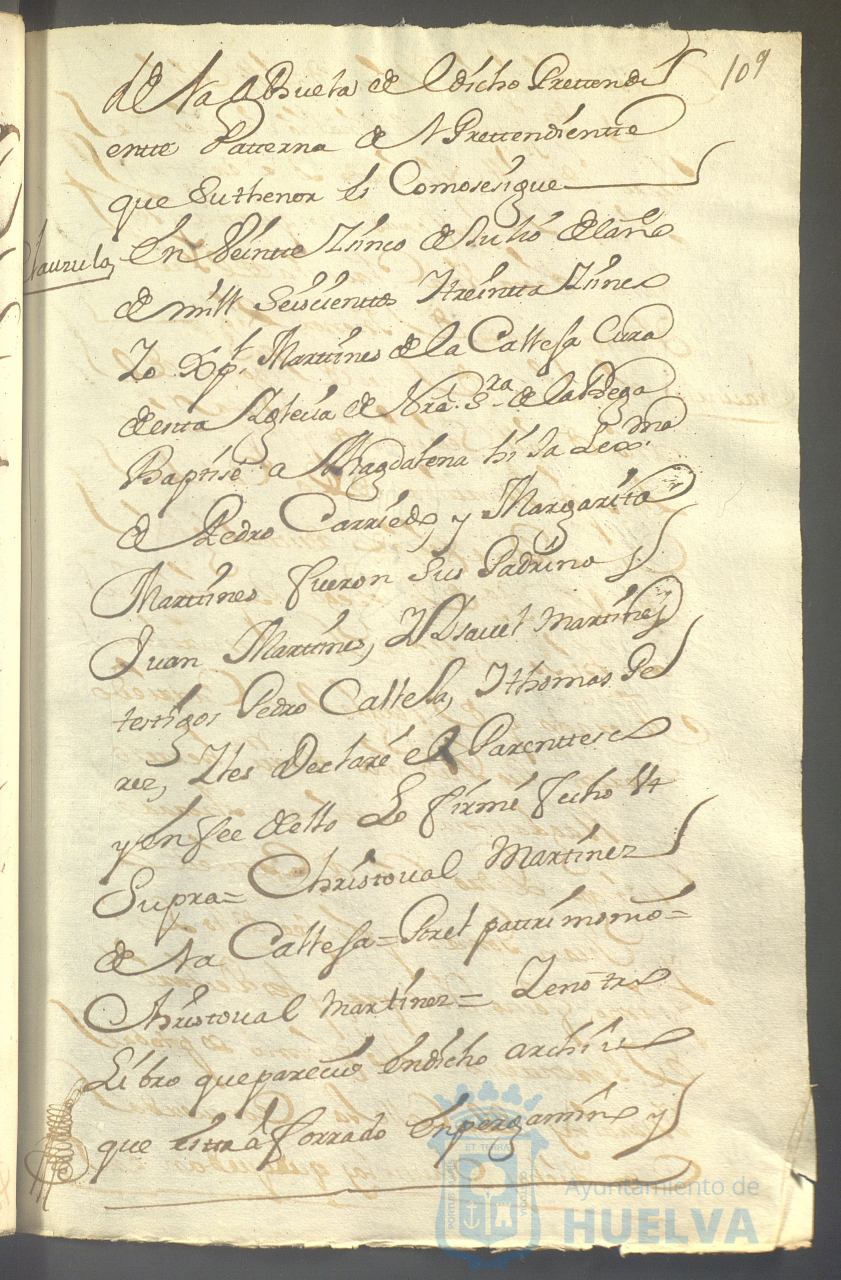 109
de la Abuela de el dicho Prettendi
ente Patterna de el Prettendientte
que Su thenor es Como se sigue
Clausula
En Veintte Zinco de Julio de el año
de mill Seiscienttos Ytreintta Zinco
Yo Xpl. Marttines de la Callesa Cura
de esta Yglecia de Nrâ. Sra. de la Bega
Baptisé a Magdalena hija Lexma.
de Pedro Carriedo, y Margarita
Marttines fueron Sus Padrinos
Juan Marttines, Y Ysavel Marttines
testigos Pedro Callesa, Ythomas Pe
rez, Yles Declaré el Parenttesco
y en fee dello Lo firmé fecho Vt
Supra= Christoual Marttinez
de la Callesa= Por el pattrimonio=
Christoual Marttinez= Yen otro
Libro que parecio En dicho archivo
que estta forrado en pergamino y
ET TERRAE
Ayuntamiento de
HUELVA